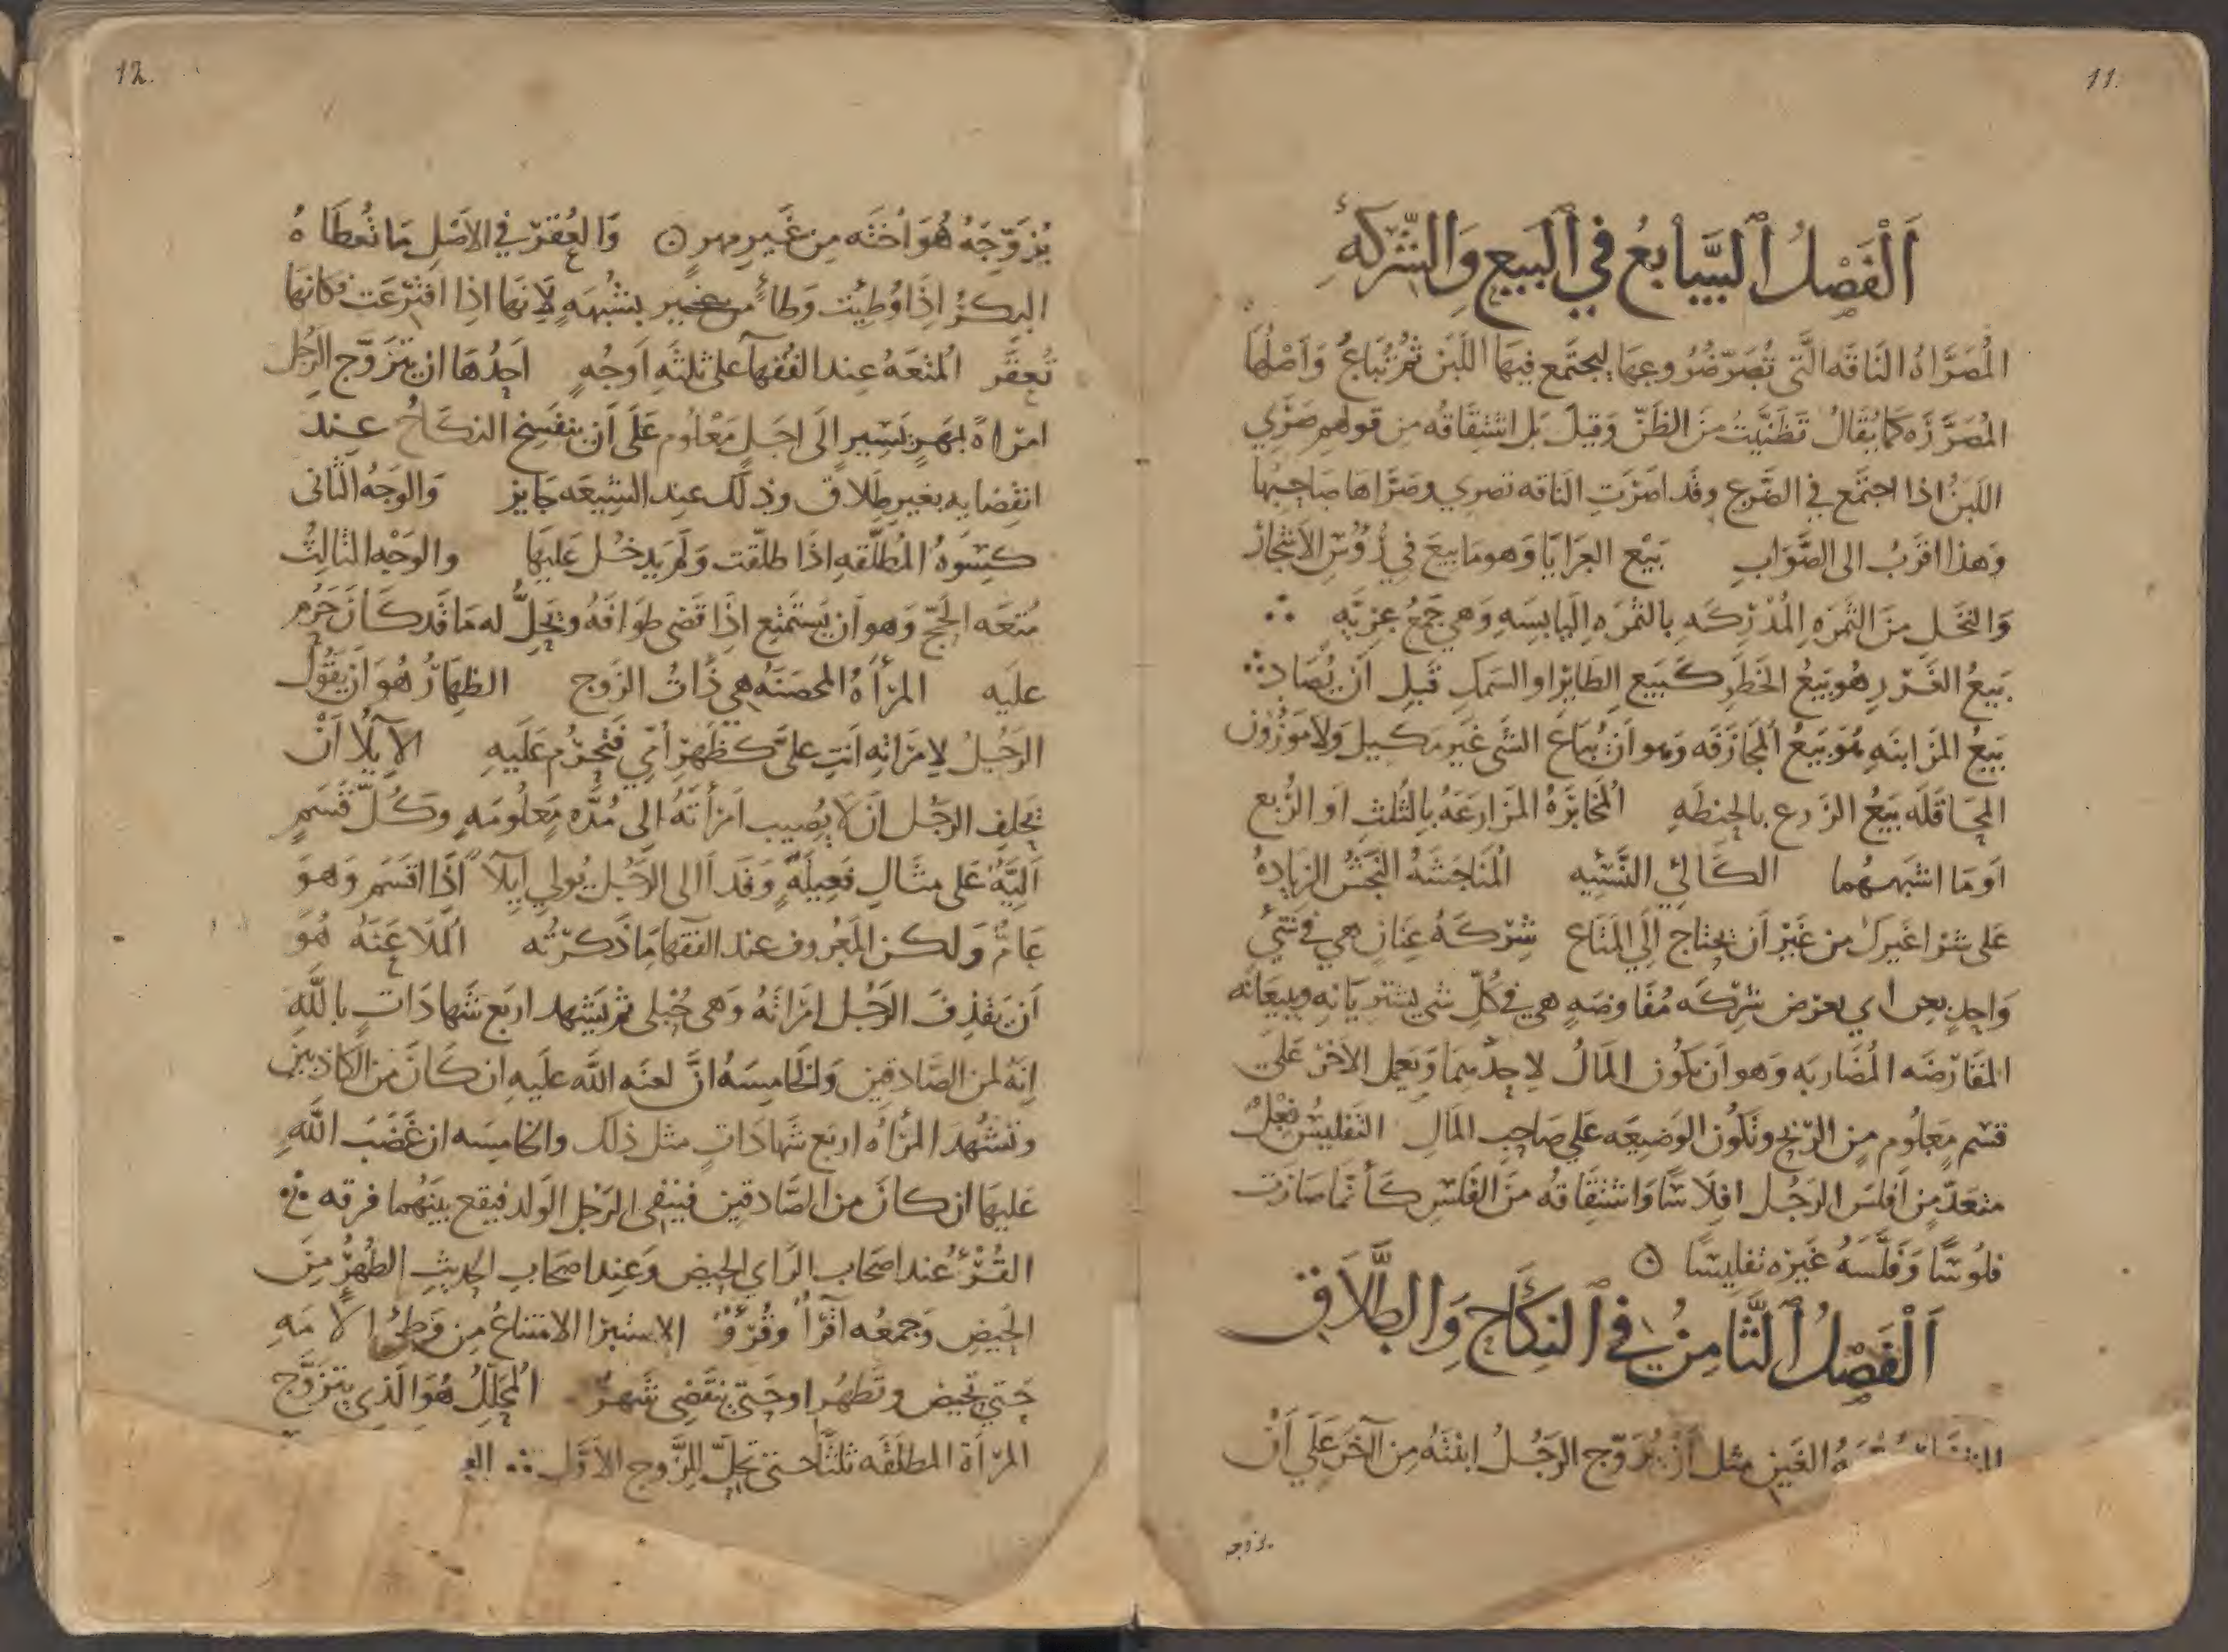 11.
اَلْفَصْلُ السَّابعُ في البَيع وَالشّركهِ
المُصَرَّاهُ النَاقه الَّتي تُصَرّ ضُرُوعهَا ليجتَمع فيهَا اللَبَن ثم تُبَاعُ وَاَصْلهَا
المُصَرَّرَه كما يُقَالُ تَظَنَّيتُ منَ الظَنّ وَقيلَ بَل اشتقَاقه من قولهم صَرّي
اللبَنُ اذا اجتَمع في الضَرع وقد اصَرَتِ الناقه تصري وصَرَّاها صَاحِبُها
وَهذا اقرَبُ الى الصَّوَابِ بَيْع العَرَايَا وَهو مَا بيعَ في رُؤُسِ الاَشجَار
وَالنخَل مِنَ الثَمَرَه المُدْرِكَه بالثمَرَه اليَابسَه وَهي جَمعُ عرِيّه
بَيعُ الغَرَر هُو بَيعُ الخَطَر كَبَيع الطَايرْ او السَمَك قَبل اَنْ يُصَاد
بَيعُ المزَابنَه هُوَ بَيعُ المجَازَفَه وَهو اَنْ يُبَاعَ الشَي غَيَر مَكيل وَلا مَوْزُون
المحَاقَلَه بَيعُ الزَرع بالحِنطَهِ المُخَابَرَهُ المزَارعَهُ بالثُلثِ اَو الرُبع
اَو مَا اشبَهَهُما الكَالِئ النَسيّه المُنَاجَشَهُ النَجَشُ الزيَادهُ
عَلى شرَا غيَركَ من غَيْر اَن تحتَاج اِلي المتَاع شرْكَهُ عِنَانٍ هي في شَيٍ
وَاحِدٍ بعن اي بعرَض شِرْكَه مُفَاوضَهٍ هي في كُلّ شي يشتريَانه ويبيعَانه
المقَارَضَه المُضَاربَه وَهو اَن يكُون المَالُ لاحِدهمَا وَيَعمل الاَخَر عَلي
قسْم مَعلُوم مِن الربْح وتكُون الوَضيعَه علي صَاحِب المَال التَفليسُ فِعْلٌ
متعَدٍّ مِن اَفلسَ الرَجُل افلاسًا وَاشتقَاقه مِنَ الفَلسِ كَاَنّما صَارَت
فلُوسًا وَفلَّسَهُ غَيَره تفليسًا
اَلْفَصْلُ الثَّامِنُ في النِكَاح وَالطَّلَاق
الغَين مثل اَنْ يُزوّج الرَجُلُ ابنتَهُ مِن آخَرَ عَلي اَنْ
يزوجه
12.
يُزَوّجَهُ هُوَ اُختَه مِن غَيرِ مهرٍ وَالعُقْر في الاَصْل مَا تُعطَاهُ
البكرُ اِذَا وُطِئَت وَطأً من غير بشُبهَهٍ لاَنهَا اِذا افتَرعَت فكانهَا
تُعقَر المُتعَهُ عند الفُقهآ على ثلثه اَوجُهٍ اَحَدُهَا ان يتزَوّج الرَجُل
امرَاهً بمَهرٍ يَسير الَى اجَلٍ مَعْلوم عَلَى اَن ينفَسِخ النكَاحُ عِند
انقِضَايه بغَيرِ طلاَق وذلك عِند الشيعَه جَايز وَالوَجهُ الثاني
كِسْوهُ المُطَلّقهِ اذَا طلّقت وَلَم يَدخُل عَليهَا والوَجْه الثالثُ
مُتعَه الحَجّ وَهو اَن يَستَمتِع اِذَا قَضى طوَافهُ ويَحِلّ له مَا قَد كَانَ حَرُم
عليه المرْاَهُ المحصَنَهُ هي ذَاتُ الزَوج الظِهَارُ هُوَ اَن يَقُول
الرَجُلُ لامرَاتِه اَنتِ علَيَّ كظَهرِ اُمّي فَتحرُم عَلَيهِ الآيِلاَ اَنْ
يَحلِف الرَجُل اَن لاَ يُصيب امرَاَتهُ الى مُدّه مَعلُومَهٍ وَكُلّ قَسَمٍ
اَليَّهٌ عَلى مثَال فَعِيلَهٍ وَقد اَالى الرَجُل يُولي ايلاً اِذَا اقسَم وَهوَ
عَامٌّ وَلكن المَعرُوف عند الفقهَا مَا ذَكرْته المُلاَعنَهُ هُوَ
اَن يَقذِفَ الرَجُل امرَاتهُ وَهي حُبْلى ثم يَشهد اربَع شهَادَاتٍ باللهِ
اِنّهُ لمن الصَّادقِين وَالخامِسَهُ انّ لعنَه الله عليهِ ان كَانَ مِن الكاذبين
وتشهُد المرْاَهُ اربَع شَهادَاتٍ مثل ذلكَ والخامِسَه ان غَضَبَ اللهِ
عَليهَا ان كانَ من الصَّادقين فينتفى الرَجُل الوَلد فيقَع بينَهُما فرقه
القُرْءُ عند اصحَاب الرَاي الحيض وَعِند اصحَاب الحديثِ الطُهْرُ مِنَ
الحَيض وَجمعُه اَقرَأ وَقُرُوْ الاستبرَا الامتنَاعُ مِن وَطئِ الامَهِ
حَتى تَحيض وتَطهُر او حَتى ينقَضِى شَهرٌ المُحلِّلُ هُوَ الَذِي يتزَوَّج
المرْاَة المطلقَه ثلثًا حتى تحِلّ للزَّوج الاَوَّل